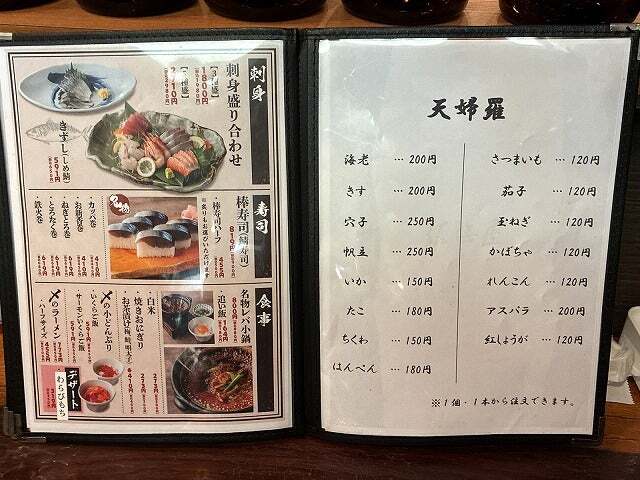 刺身
刺身盛り合わせ
1800円
きずし(しめ鯖)
591円
寿司
棒寿司(鯖寿司)
819円
棒寿司ハーフ
455円
※炙りもお選びいただけます
カッパ巻
お新香巻
ねぎとろ巻
とろたく巻
鉄火巻
食事
名物レバ小鍋
800円
追い飯
白米
焼きおにぎり
お茶漬け(梅、鮭、明太子)
〆の小どんぶり
いくらご飯
サーモンいくらご飯
〆のラーメン
ハーフサイズ
デザート
わらびもち
天婦羅
海老 … 200円
きす … 200円
穴子 … 250円
帆立 … 250円
いか … 150円
たこ … 180円
ちくわ … 150円
はんぺん … 180円
さつまいも … 120円
茄子 … 120円
玉ねぎ … 120円
かぼちゃ … 120円
れんこん … 120円
アスパラ … 200円
紅しょうが … 120円
※1個・1本から注文できます。